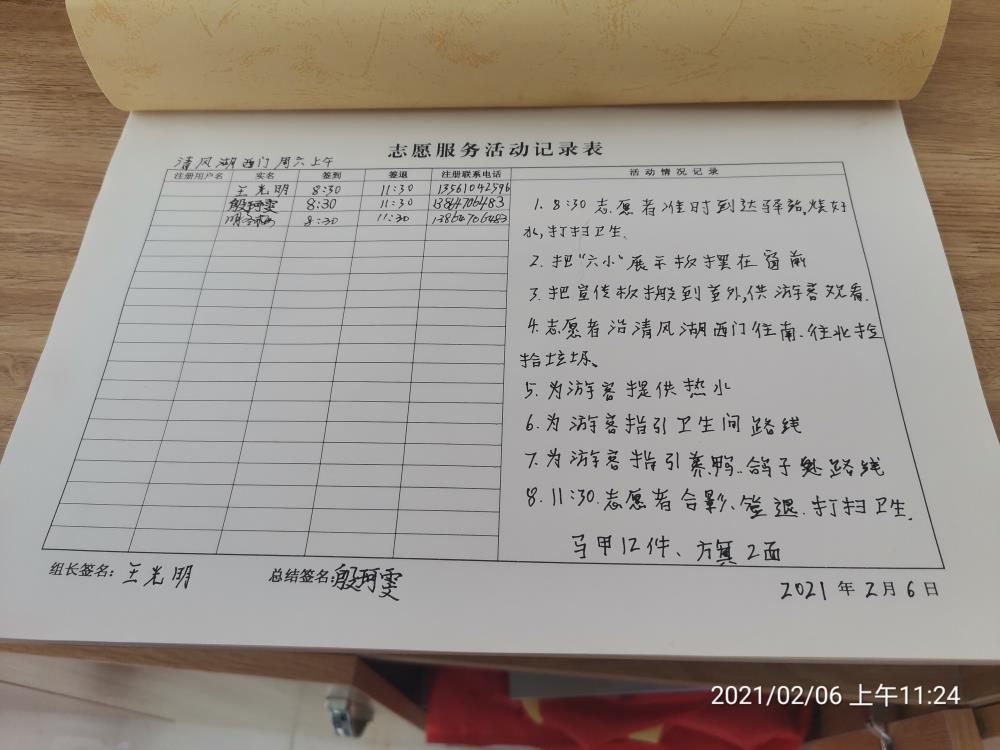 志愿服务活动记录表
清风湖西门 周六上午
注册用户名 实名 签到 签退 注册联系电话 活动情况记录
王光明 8:30 11:30 13561042596
殷珂雯 8:30 11:30 13864706483
8:30 11:30 13864706483
1. 8:30 志愿者准时到达驿站,烧好
水,打扫卫生、
2. 把“六小”展示板摆在窗前
3. 把宣传板搬到室外,供游客观看.
4. 志愿者沿清风湖西门往南、往北捡
拾垃圾。
5. 为游客提供热水
6. 为游客指引卫生间路线
7. 为游客指引养鸭、鸽子 路线
8. 11:30.志愿者合影、签退.打扫卫生.
马甲12件、方旗2面
组长签名:王光明 总结签名:殷珂雯
2021年2月6日
2021/02/06 上午11:24